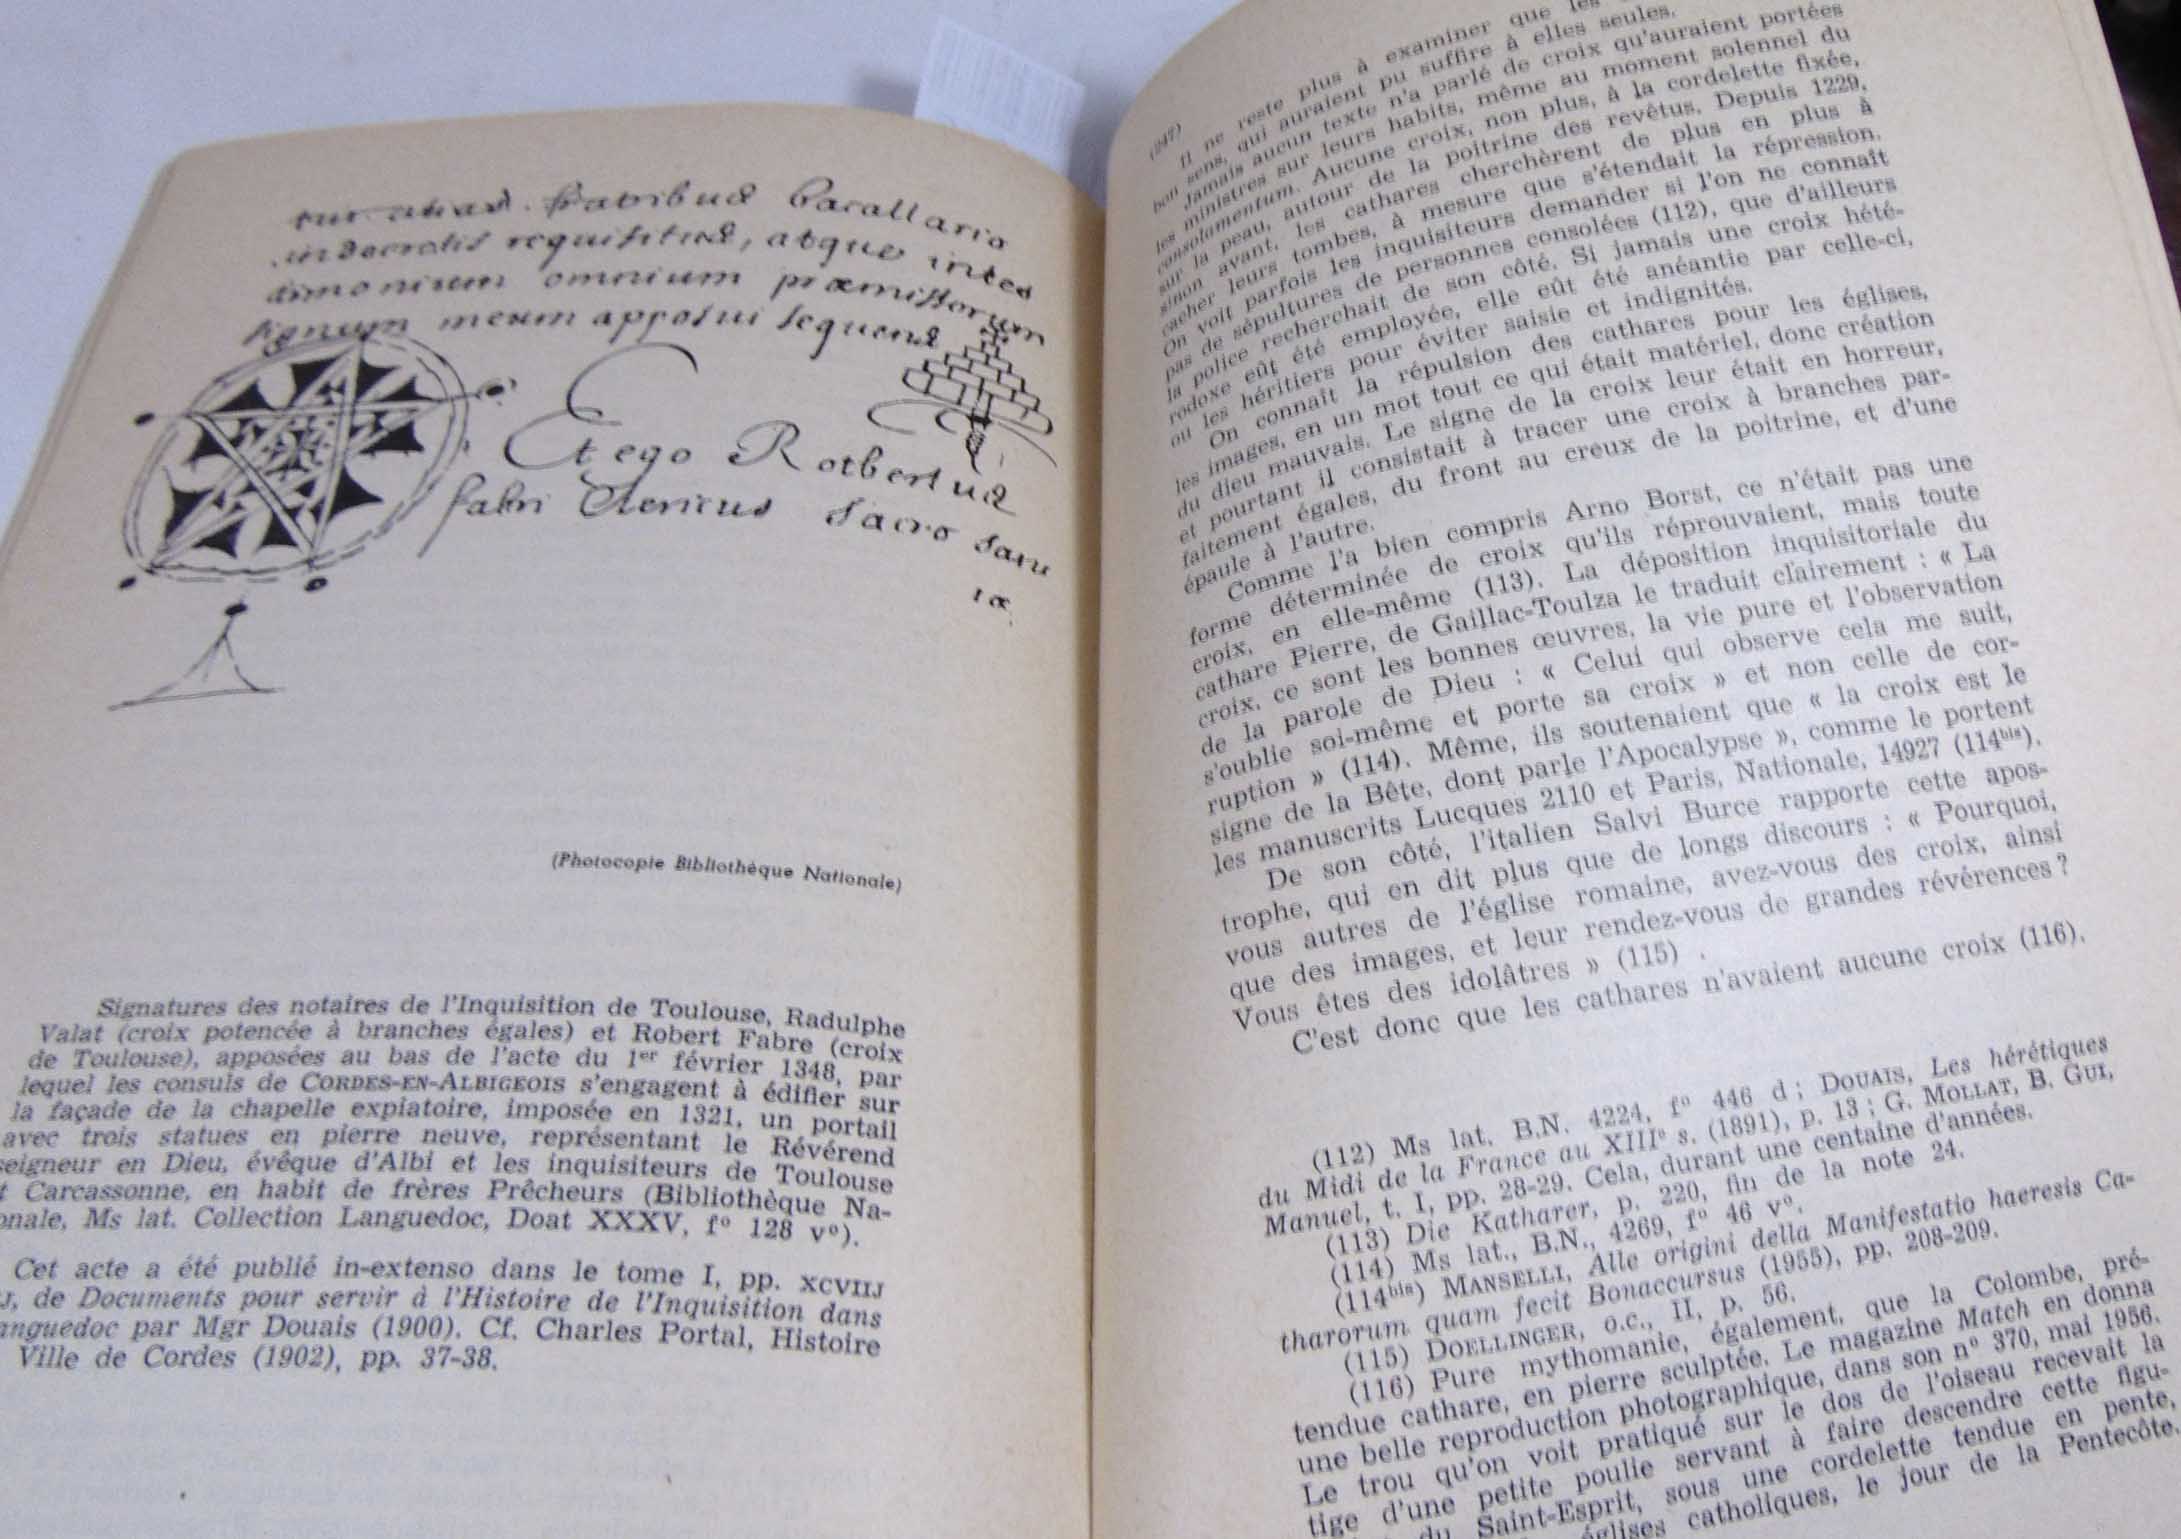 fratribus bacallario
requisitus, atque intes
timonium omnium præmissorum
signum meum apposui sequens
Et ego Rotbertus
fabri Clericus sacro sanc
tæ
(Photocopie Bibliothèque Nationale)
Signatures des notaires de l'Inquisition de Toulouse, Radulphe
Valat (croix potencée à branches égales) et Robert Fabre (croix
de Toulouse), apposées au bas de l'acte du 1er février 1348, par
lequel les consuls de CORDES-EN-ALBIGEOIS s'engagent à édifier sur
la façade de la chapelle expiatoire, imposée en 1321, un portail
avec trois statues en pierre neuve, représentant le Révérend
seigneur en Dieu, évêque d'Albi et les inquisiteurs de Toulouse
t Carcassonne, en habit de frères Prêcheurs (Bibliothèque Na-
onale, Ms lat. Collection Languedoc, Doat XXXV, f° 128 v°).
Cet acte a été publié in-extenso dans le tome I, pp. XCVIIJ
J, de Documents pour servir à l'Histoire de l'Inquisition dans
anguedoc par Mgr Douais (1900). Cf. Charles Portal, Histoire
Ville de Cordes (1902), pp. 37-38.
(247)
Il ne reste plus à examiner que les
bon sens, qui auraient pu suffire à elles seules.
Jamais aucun texte n'a parlé de croix qu'auraient portées
les ministres sur leurs habits, même au moment solennel du
consolamentum. Aucune croix, non plus, à la cordelette fixée,
sur la peau, autour de la poitrine des revêtus. Depuis 1229,
sinon avant, les cathares cherchèrent de plus en plus à
cacher leurs tombes, à mesure que s'étendait la répression.
On voit parfois les inquisiteurs demander si l'on ne connaît
pas de sépultures de personnes consolées (112), que d'ailleurs
la police recherchait de son côté. Si jamais une croix hété-
rodoxe eût été employée, elle eût été anéantie par celle-ci,
ou les héritiers pour éviter saisie et indignités.
On connaît la répulsion des cathares pour les églises,
les images, en un mot tout ce qui était matériel, donc création
du dieu mauvais. Le signe de la croix leur était en horreur,
et pourtant il consistait à tracer une croix à branches par-
faitement égales, du front au creux de la poitrine, et d'une
épaule à l'autre.
Comme l'a bien compris Arno Borst, ce n'était pas une
forme déterminée de croix qu'ils réprouvaient, mais toute
croix, en elle-même (113). La déposition inquisitoriale du
cathare Pierre, de Gaillac-Toulza le traduit clairement : « La
croix, ce sont les bonnes œuvres, la vie pure et l'observation
de la parole de Dieu : « Celui qui observe cela me suit,
s'oublie soi-même et porte sa croix » et non celle de cor-
ruption » (114). Même, ils soutenaient que « la croix est le
signe de la Bête, dont parle l'Apocalypse », comme le portent
les manuscrits Lucques 2110 et Paris, Nationale, 14927 (114bis).
De son côté, l'italien Salvi Burce rapporte cette apos-
trophe, qui en dit plus que de longs discours : « Pourquoi,
vous autres de l'église romaine, avez-vous des croix, ainsi
que des images, et leur rendez-vous de grandes révérences ?
Vous êtes des idolâtres » (115) .
C'est donc que les cathares n'avaient aucune croix (116).
(112) Ms lat. B.N. 4224, f° 446 d ; DOUAIS, Les hérétiques
du Midi de la France au XIIIe s. (1891), p. 13 ; G. MOLLAT, B. GUI,
Manuel, t. I, pp. 28-29. Cela, durant une centaine d'années.
(113) Die Katharer, p. 220, fin de la note 24.
(114) Ms lat., B.N., 4269, f° 46 v°.
(114bis) MANSELLI, Alle origini della Manifestatio haeresis Ca-
tharorum quam fecit Bonaccursus (1955), pp. 208-209.
(115) DOELLINGER, o.c., II, p. 56.
(116) Pure mythomanie, également, que la Colombe, pré-
tendue cathare, en pierre sculptée. Le magazine Match en donna
une belle reproduction photographique, dans son n° 370, mai 1956.
Le trou qu'on voit pratiqué sur le dos de l'oiseau recevait la
tige d'une petite poulie servant à faire descendre cette figu-
du Saint-Esprit, sous une cordelette tendue en pente,
églises catholiques, le jour de la Pentecôte.